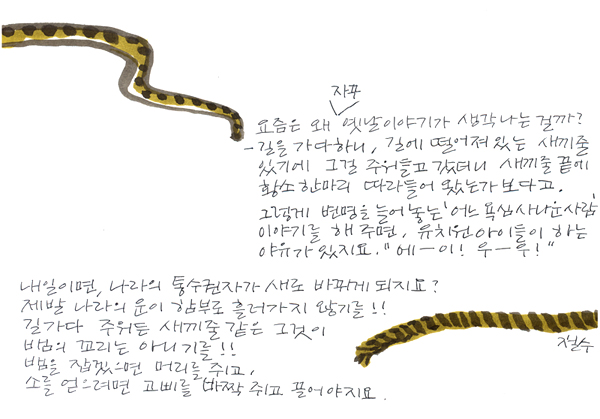 자꾸
요즘은 왜 옛날이야기가 생각나는 걸까?
- 길을 가다하니, 길에 떨어져 있는 새끼줄
있기에 그걸 주워들고 갔더니 새끼줄 끝에
황소 한마리 따라들어 왔는가 보다고.
그렇게 변명을 늘어 놓는 '어느 욕심사나운사람'
이야기를 해 주면, 유치원아이들이 하는
야유가 있지요. "에ー이! 우ー우!"
내일이면, 나라의 통수권자가 새로 바뀌게 되지요?
제발 나라의 운이 함부로 흘러가지 않기를!!
길가다 주워든 새끼줄 같은 그것이
뱀의 꼬리는 아니기를!!
뱀을 잡겠으면 머리를 쥐고,
소를 얻으려면 고삐를 바짝 쥐고 끌어야지요.
철수